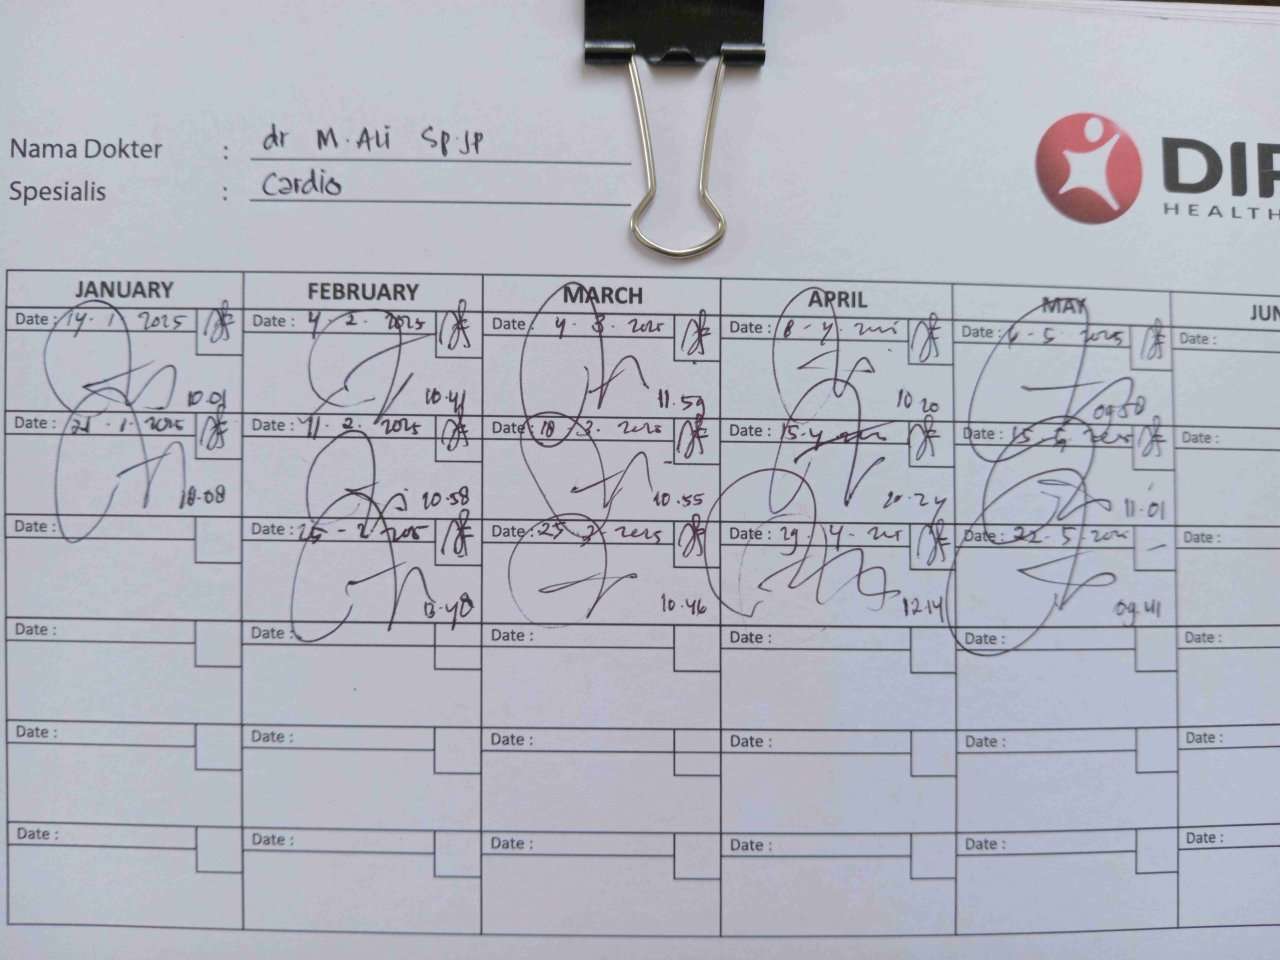 Nama Dokter : dr M. Ali Sp.JP
Spesialis : Cardio
DIP
HEALTH
JANUARY FEBRUARY MARCH APRIL MAY JUN
Date : 14 - 1 2025 Date : 4 - 2 - 2025 Date : 4 - 3 - 2025 Date : 8 - 4 - Date : 6 - 5 - 2025 Date :
10.01 10.41 11.59 10 20
Date : 21 - 1 - 2025 Date : 11 - 2 - 2025 Date : 18 - 3 - 2025 Date : 15 - 4 - Date : 15 - 5 - Date :
10.08 10.58 10.55 10.24 11.01
Date : Date : 25 - 2 - 2025 Date : 25 - 3 - 2025 Date : 29 - 4 - Date : 22 - 5 - Date :
10.46 12.14 09.41
Date : Date : Date : Date : Date :
Date : Date : Date : Date : Date : Date :
Date : Date : Date : Date : Date : Date :